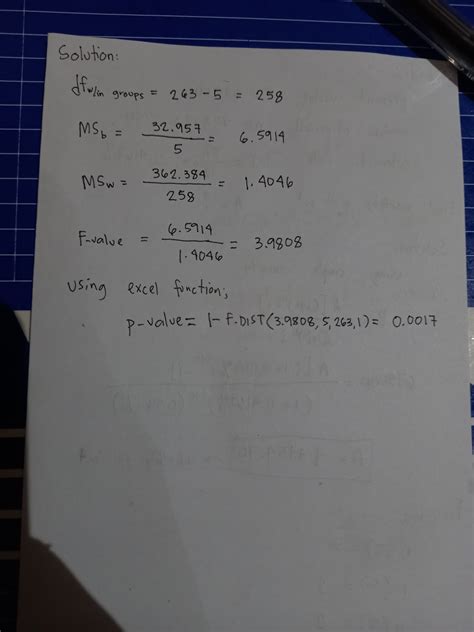 Solution:
df w/in groups = 263 - 5 = 258
MSb = 32.957 / 5 = 6.5914
MSw = 362.384 / 258 = 1.4046
F-value = 6.5914 / 1.4046 = 3.9808
Using excel function;
p-value = 1- F.DIST(3.9808, 5, 263, 1) = 0.0017